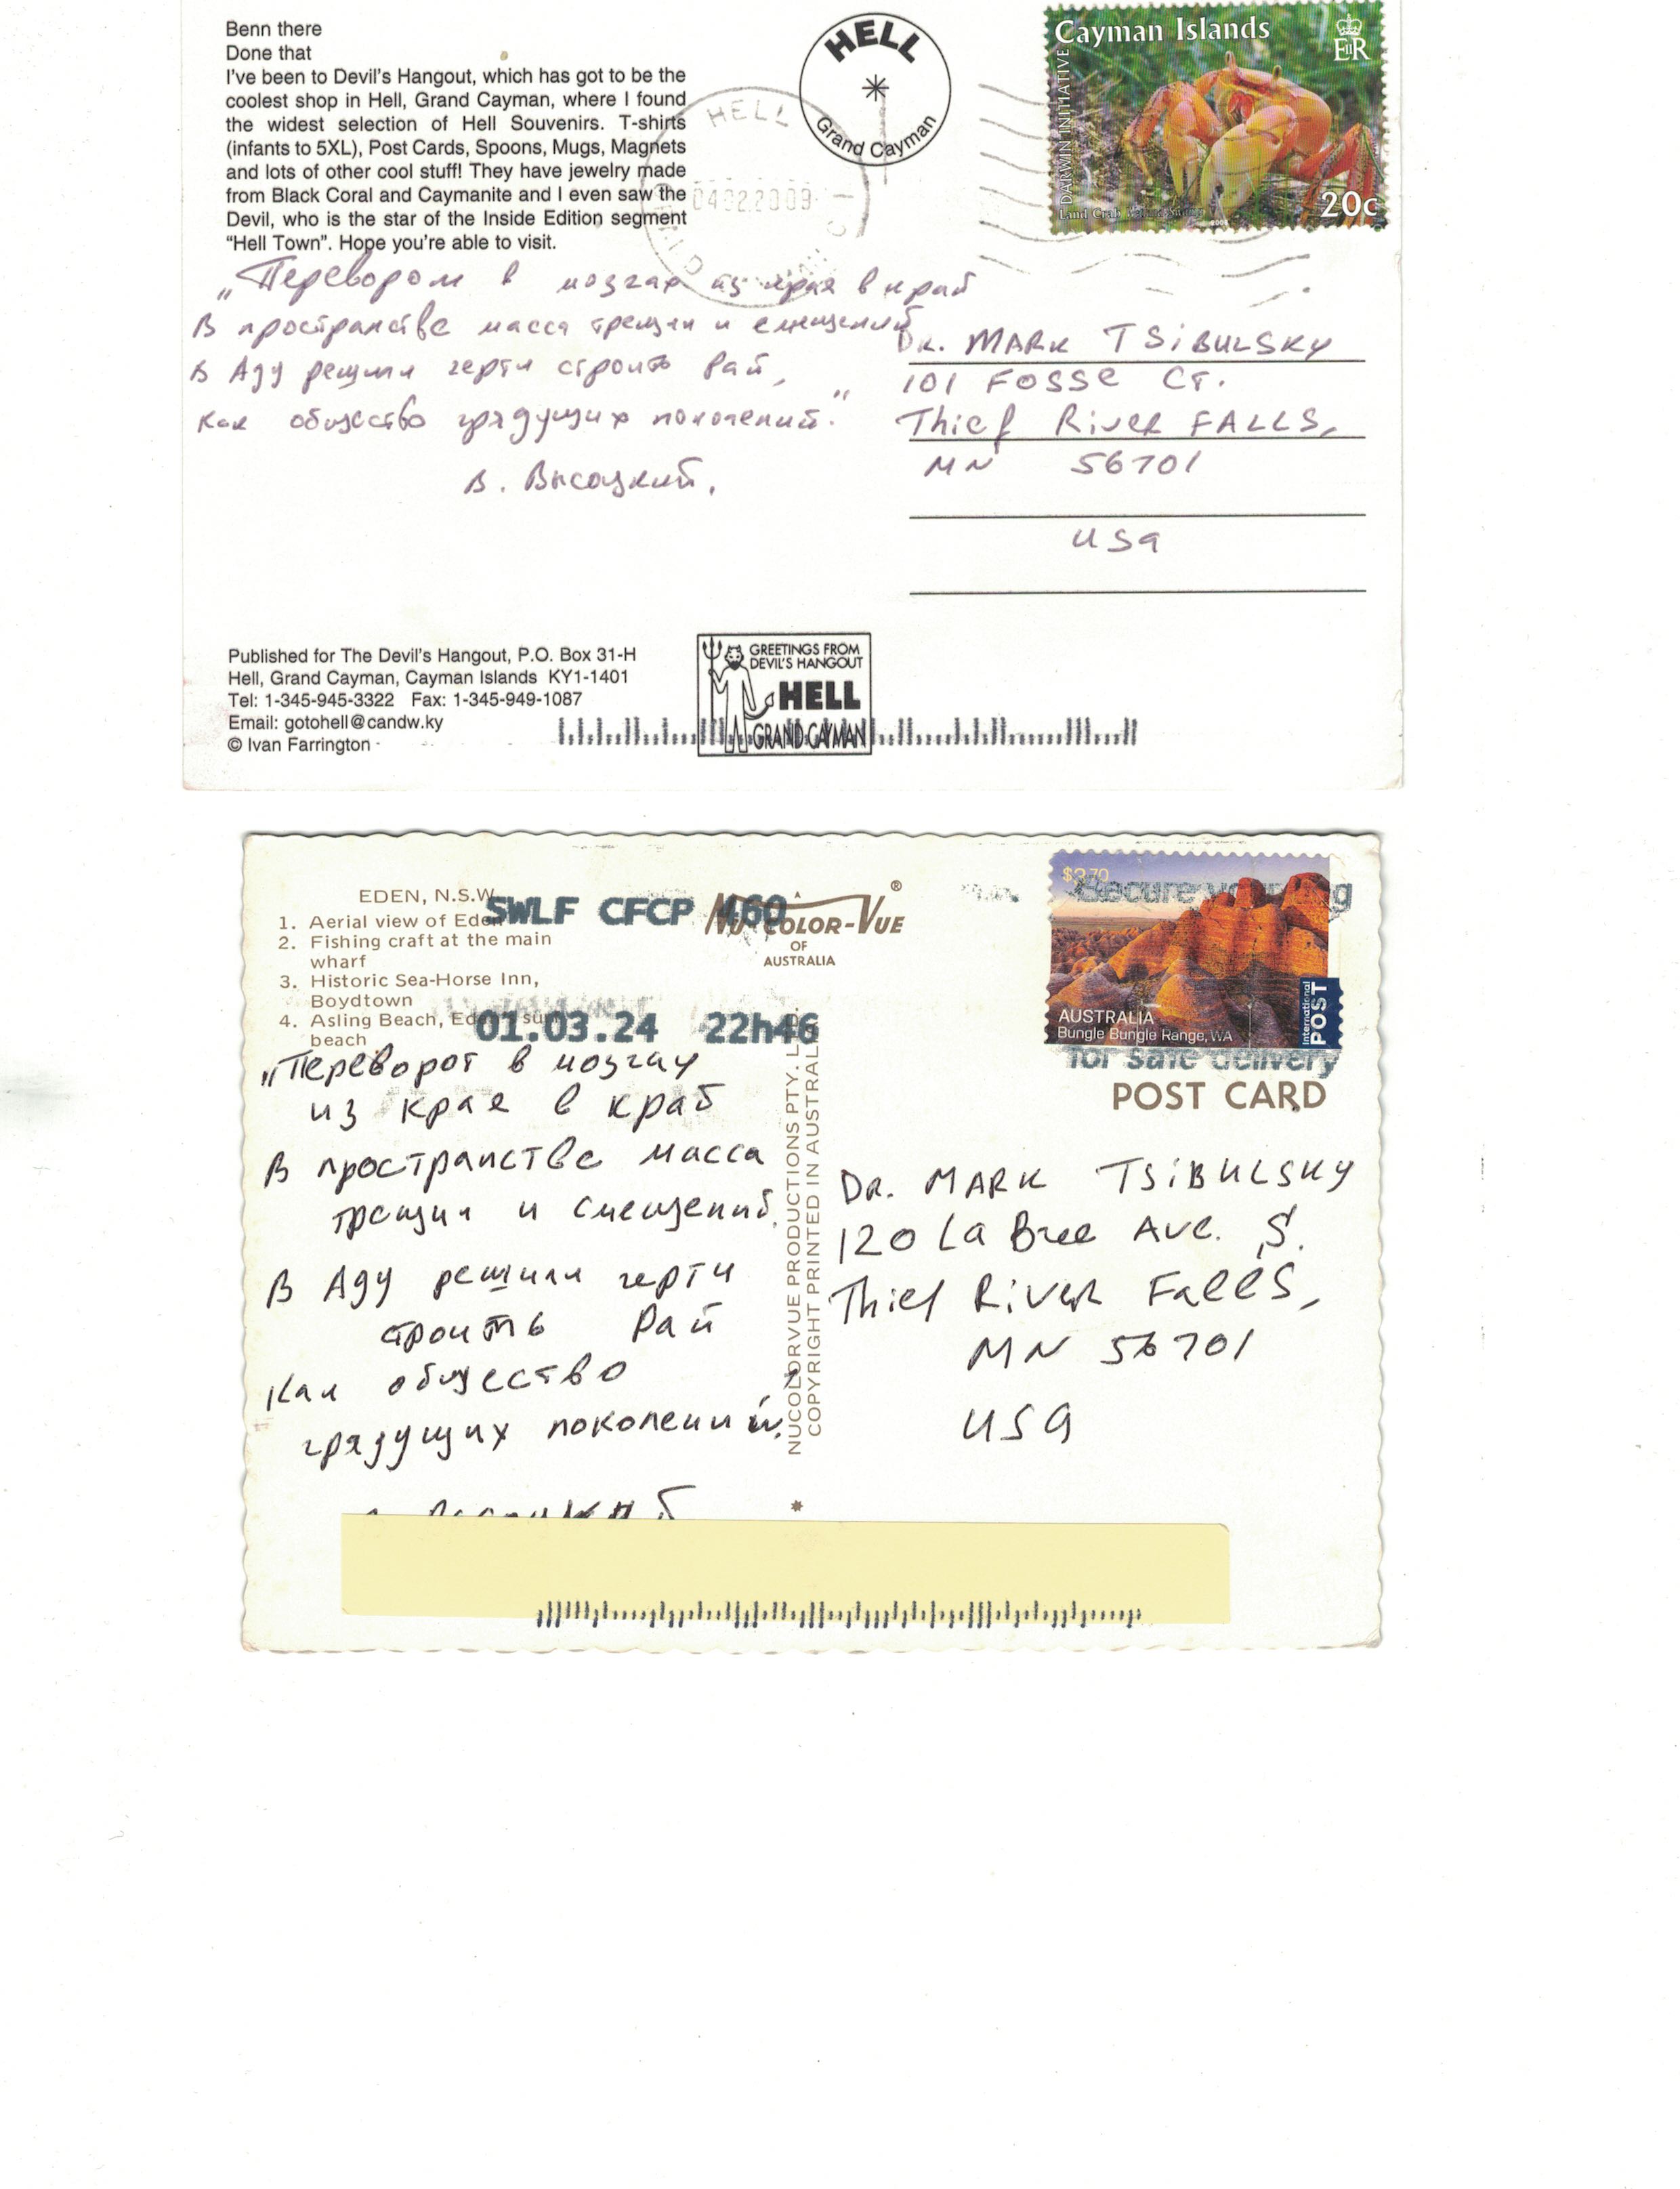 Benn there
Done that
I've been to Devil's Hangout, which has got to be the
coolest shop in Hell, Grand Cayman, where I found
the widest selection of Hell Souvenirs. T-shirts
(infants to 5XL), Post Cards, Spoons, Mugs, Magnets
and lots of other cool stuff! They have jewelry made
from Black Coral and Caymanite and I even saw the
Devil, who is the star of the Inside Edition segment
"Hell Town". Hope you're able to visit.
HELL
Grand Cayman
HELL
04022009
Cayman Islands
EIIR
DARWIN INITIATIVE
Land Crab
20c
„Переворот в мозгах из края в край
В пространстве масса трещин и смещений
В Аду решили черти строить Рай,
Как общество грядущих поколений."
В. Высоцкий.
DR. MARK TSiBULSKY
101 Fosse CT.
Thief River FALLS,
MN 56701
USA
Published for The Devil's Hangout, P.O. Box 31-H
Hell, Grand Cayman, Cayman Islands KY1-1401
Tel: 1-345-945-3322 Fax: 1-345-949-1087
Email: gotohell@candw.ky
© Ivan Farrington
GREETINGS FROM
DEVIL'S HANGOUT
HELL
GRAND CAYMAN
EDEN, N.S.W.
1. Aerial view of Eden
2. Fishing craft at the main
wharf
3. Historic Sea-Horse Inn,
Boydtown
4. Asling Beach, Eden
beach
SWLF CFCP 460
01.03.24 22h46
NU-COLOR-VUE ®
OF
AUSTRALIA
NUCOLORVUE PRODUCTIONS PTY.
COPYRIGHT PRINTED IN AUSTRALIA
$3.70
Secure
AUSTRALIA
Bungle Bungle Range, WA
International
POST
for safe delivery
POST CARD
„Переворот в мозгах
из края в край
В пространстве масса
трещин и смещений.
В Аду решили черти
строить Рай
Как общество
грядущих поколений.
DR. MARK TSiBULSKY
120 La Bree Ave. S.
Thief River Falls,
MN 56701
USA